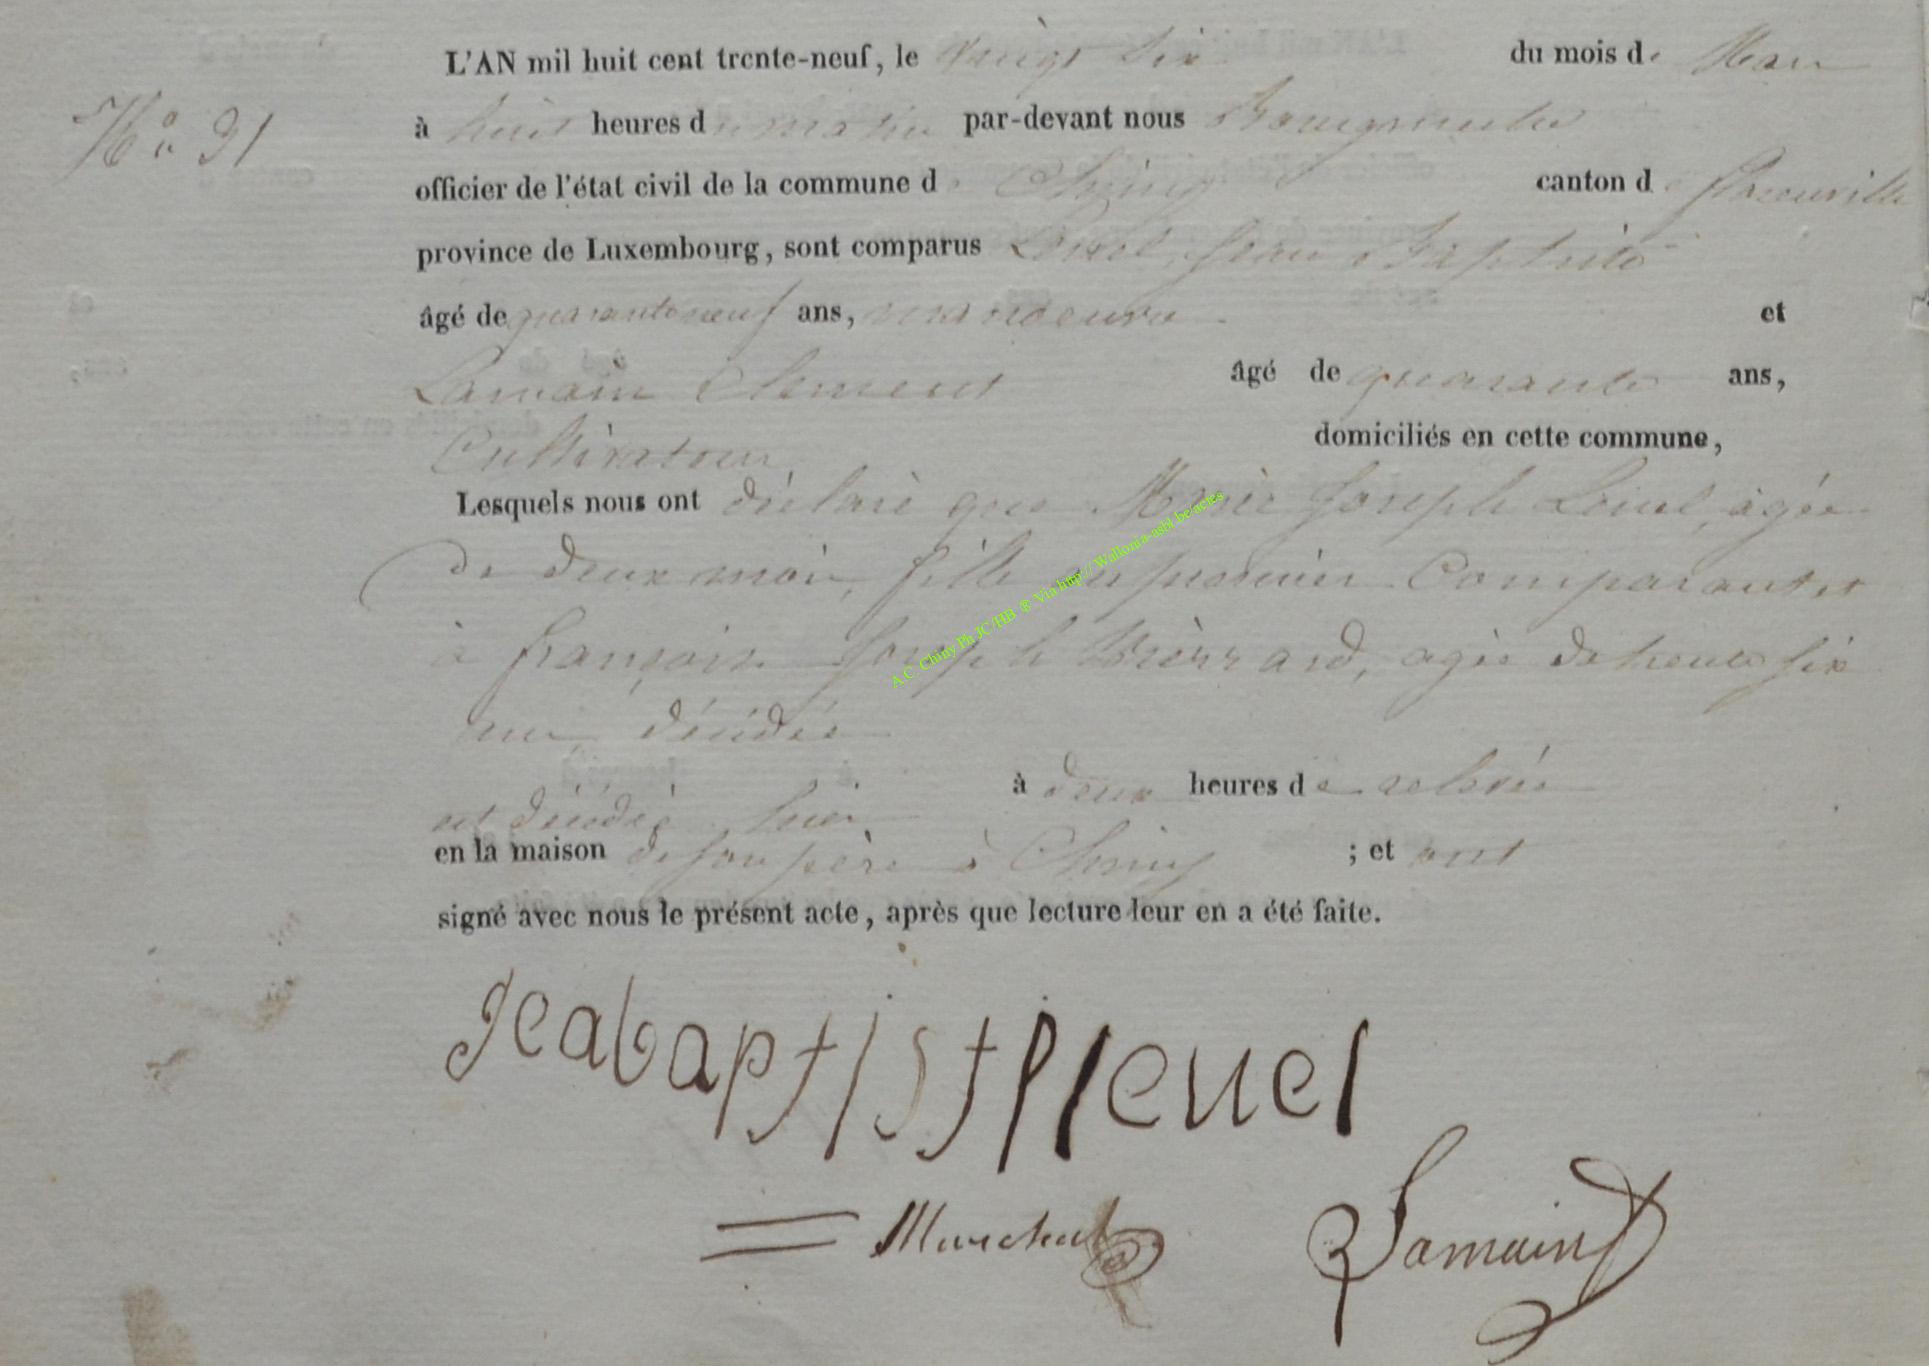 L'AN mil huit cent trente-neuf, le vingt six du mois de Mars
N° 31
à huit heures du matin par-devant nous Bourgmestre
officier de l'état civil de la commune de Chiny canton de florenville
province de Luxembourg, sont comparus Louel Jean Baptiste
âgé de quarante neuf ans, manoeuvre et
Lamain Clement âgé de quarante ans,
Cultivateur domiciliés en cette commune,
Lesquels nous ont déclaré que Marie Joseph Louel, agée
de deux mois, fille du premier Comparant et
à françoise Joseph agée de trente six
ans, décédée
à deux heures de relevée
est décédée hier
en la maison de son père à Chiny ; et ont
signé avec nous le présent acte, après que lecture leur en a été faite.
Marechal Lamain
A.C. Chiny Ph JC/HB ® Via http://Wallonia-asbl.be/actes